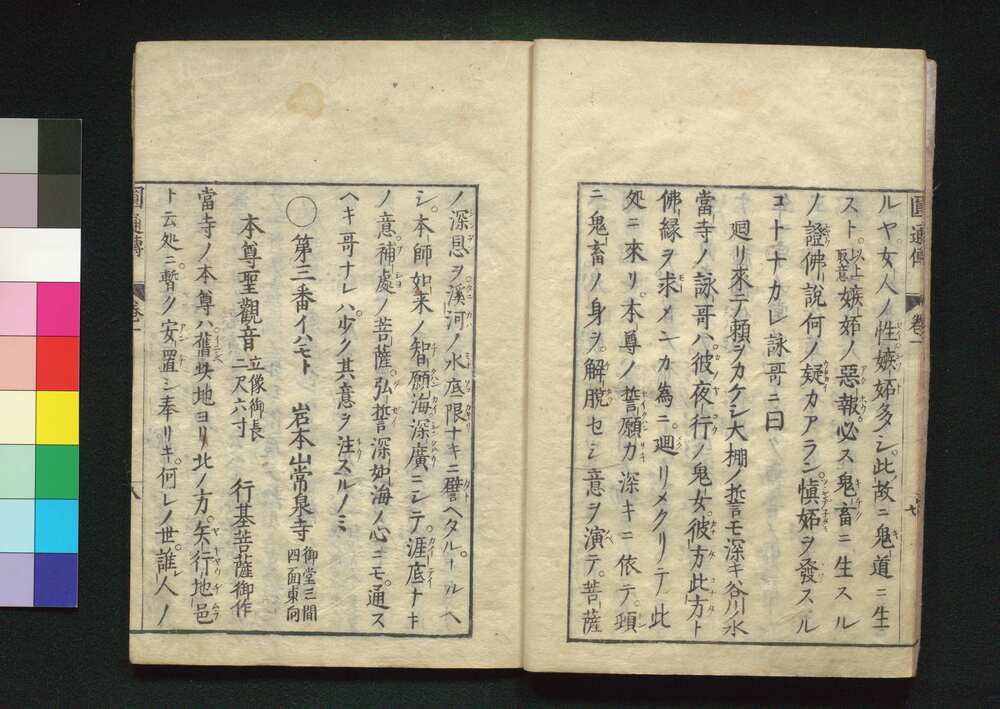 圓通傳 卷一 七
ルヤ女人ノ性嫉妬多シ。此故ニ鬼道ニ生
スト以上取意嫉妬ノ惡報必ス鬼畜ニ生スル
ノ證佛說何ノ疑カアラン愼妬ヲ發スル
コトナカレ詠哥ニ曰
廻リ來テ頼ヲカケシ大棚ノ誓モ深キ谷川ノ水
當寺ノ詠哥ハ彼夜行ノ鬼女。彼方此方ト
佛緣ヲ求メンカ為ニ廻リメクリテ此
処ニ來リ。本尊ノ誓願力深キニ依テ。頭
ニ鬼畜ノ身ヲ。解脫セシ意ヲ演テ。菩薩
ノ深恩ヲ。溪河ノ水底限ナキニ譬ヘタル。ールヘ
シ。本師如来ノ智願海深廣ニシテ。涯底ナキ
ノ意補處ノ菩薩。弘誓深如海ノ心ニモ。通ス
ヘキ哥ナレハ。少ク其意ヲ注スルノミ
〇第三番イハモト 岩本山常泉寺 御堂三間四面東向
本尊聖觀音 立像御長二尺六寸 行基菩薩御作
當寺ノ本尊ハ。舊此地ヨリ北ノ方。矢行地邑
ト云処ニ。暫ク安置シ奉リキ。何レノ世。誰人ノ
圓通傳 卷一 八